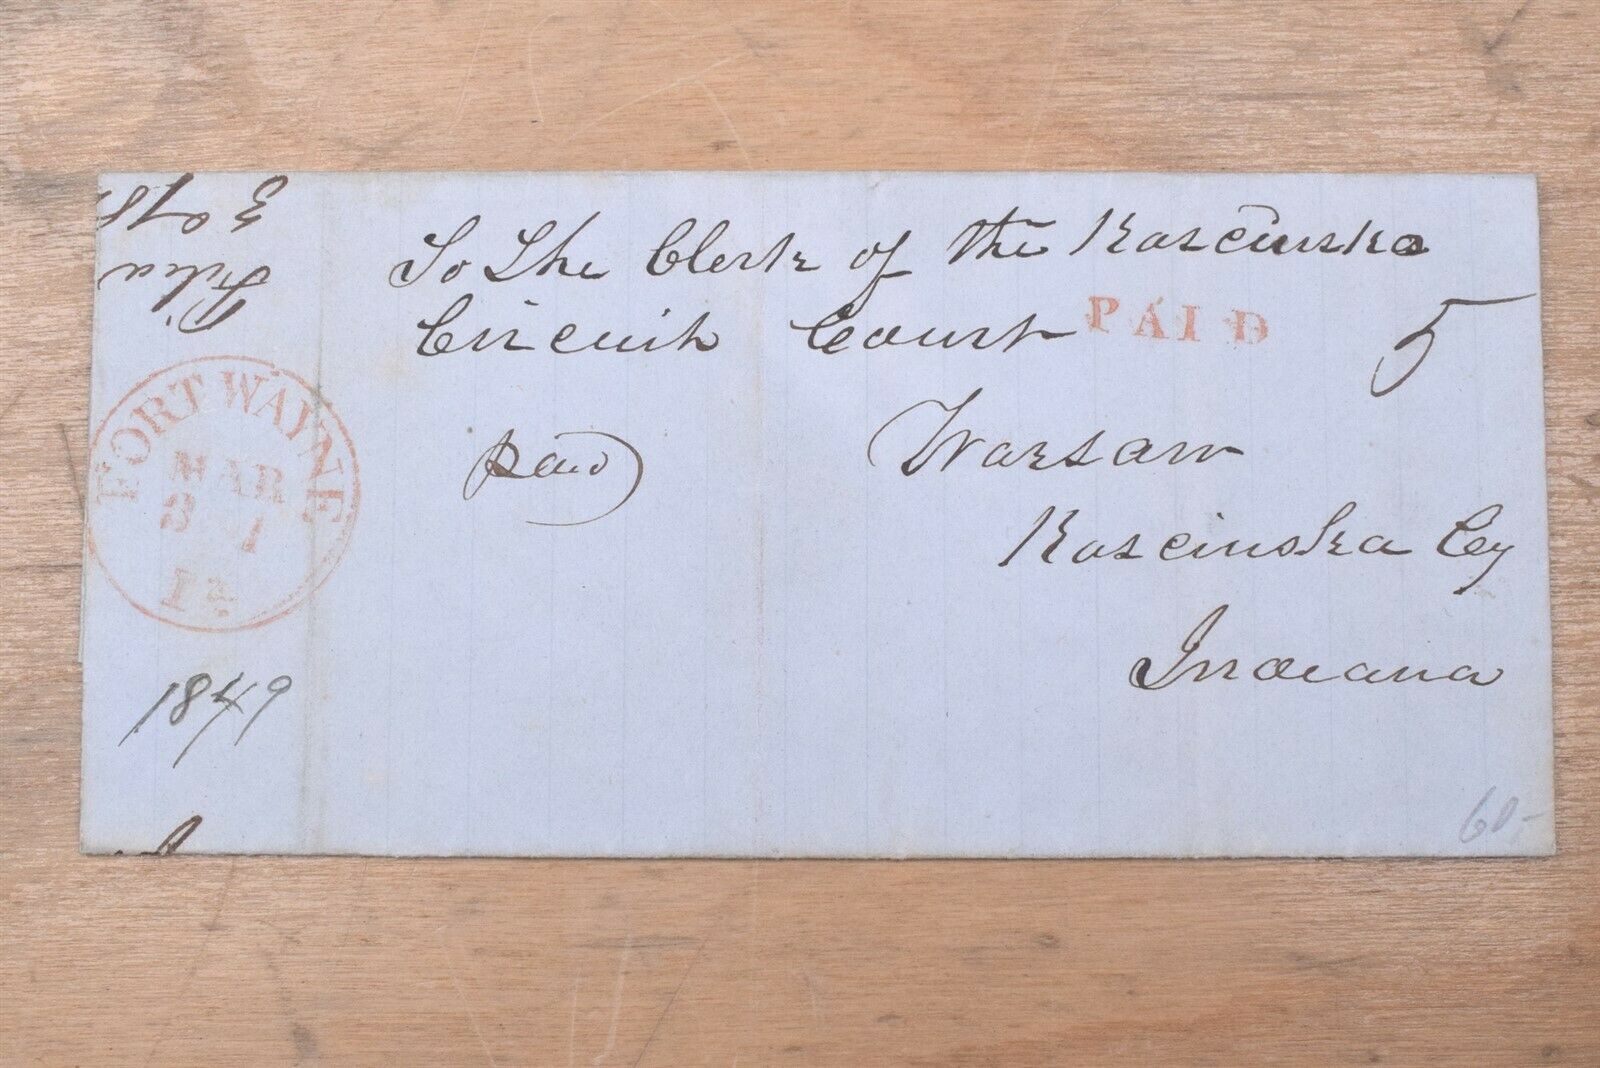 To The Clerk of the Koscinsko
Circuit Court
PAID
5
Paid
Warsaw
Koscinska Cy
Indiana
FORT WAYNE
MAR
31
Ia.
1849
Filed
60-